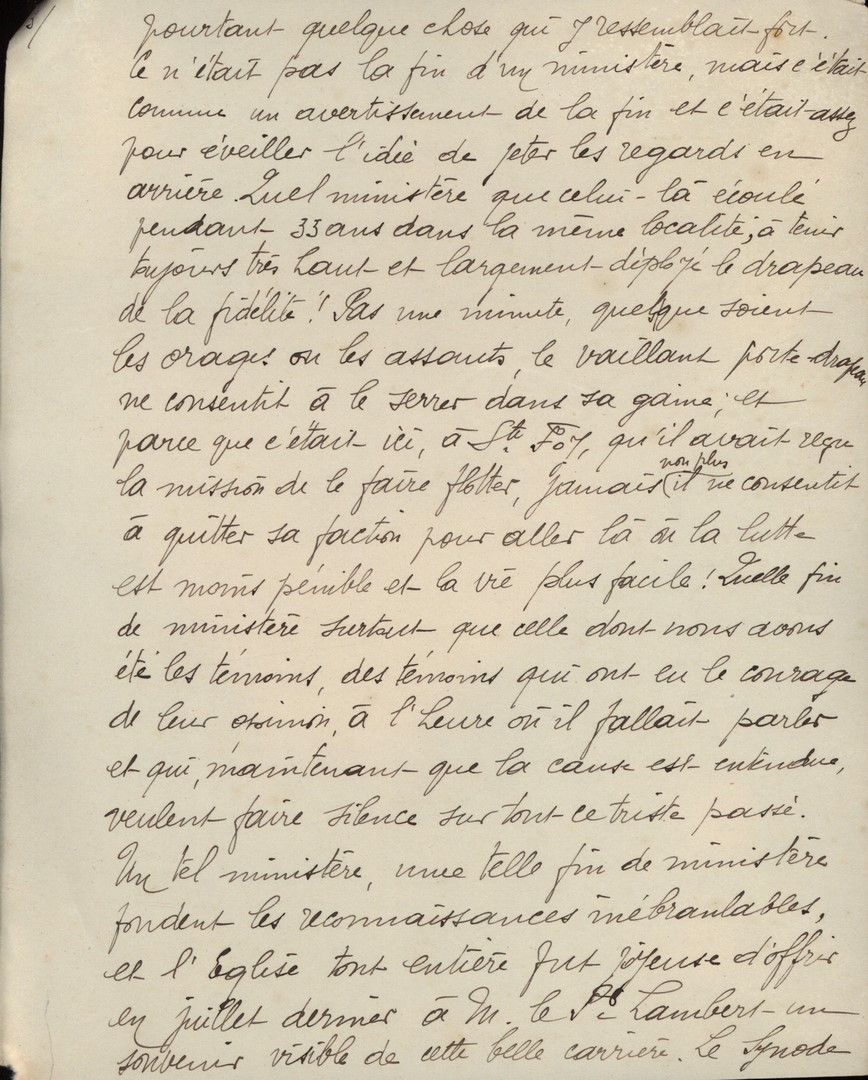 5/
pourtant quelque chose qui y ressemblait fort.
Ce n'était pas la fin d'un ministère, mais c'était
comme un avertissement de la fin et c'était assez
pour éveiller l'idée de jeter les regards en
arrière. Quel ministère que celui-là écoulé
pendant 33 ans dans la même localité, à tenir
toujours très haut et largement déployé le drapeau
de la fidélité! Pas une minute, quelque soient
les orages ou les assauts, le vaillant porte-drapeau
ne consentit à le serrer dans sa gaine; et
parce que c'était ici, à Ste Foy, qu'il avait reçu
la mission de le faire flotter, jamais (non plus il ne consentit
à quitter sa faction pour aller là où la lutte
est moins pénible et la vie plus facile! Quelle fin
de ministère surtout que celle dont nous avons
été les témoins, des témoins qui ont eu le courage
de leur opinion, à l'heure où il fallait parler
et qui, maintenant que la cause est entendue,
veulent faire silence sur tout ce triste passé.
Un tel ministère, une telle fin de ministère
fondent les reconnaissances inébranlables,
et l'Eglise tout entière fut joyeuse d'offrir
en juillet dernier à M. le Pr Lambert un
souvenir visible de cette belle carrière. Le Synode